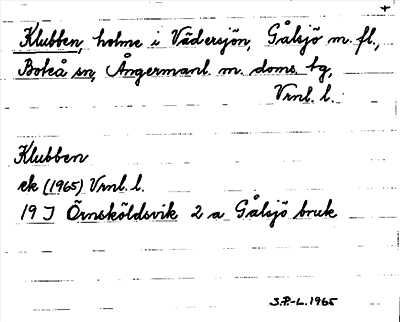 Klubben, holme i Vädersjön, Gålsjö m. fl.,
Boteå sn, Ångermanl. m. doms. tg,
Vrnl. l.
Klubben
ek (1965) Vrnl. l.
19 J Örnsköldsvik 2 a Gålsjö bruk
S.P.-L. 1965